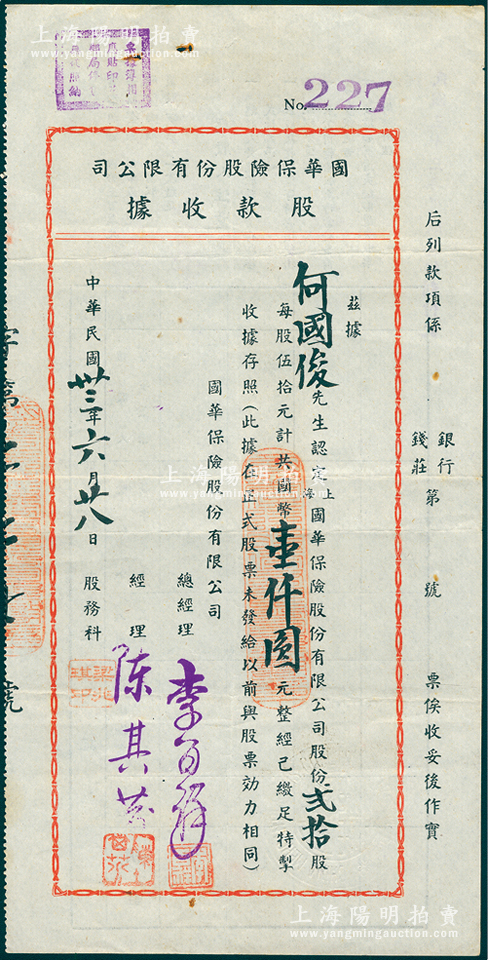 No. 227
國華保險股份有限公司
股款收據
茲據
何國俊先生認定上海國華保險股份有限公司股份弍拾股
每股伍拾元計共國幣壹仟圓元整經已繳足特掣
收據存照（此據在正式股票未發給以前與股票効力相同）
國華保險股份有限公司
總經理 李百祥
經理 陳其
中華民國卅三年六月廿八日 股務科
后列款項係 銀行錢莊 第 號 票俟收妥後作實
字第 號
上海陽明拍賣
www.yangmingauction.com
上海陽明拍賣
www.yangmingauction.com
上海陽明拍賣
www.yangmingauction.com